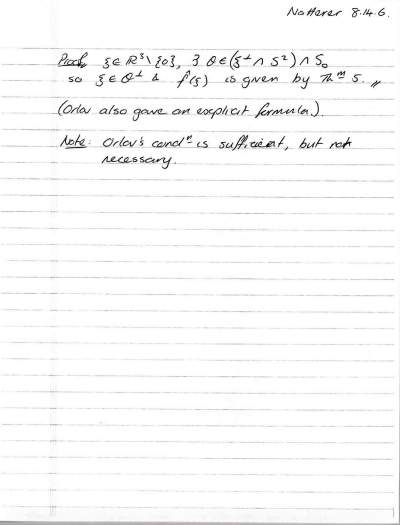 Natterer 8.14.6.
Proof. ξ ∈ ℝ³\{0}, ∃ θ ∈ (ξ^⊥ ∩ S²) ∩ S₀
so ξ ∈ θ^⊥ & f̂(ξ) is given by Thᵐ 5. //
(Orlov also gave an explicit formula.).
Note: Orlov's condⁿ is sufficient, but not
necessary.